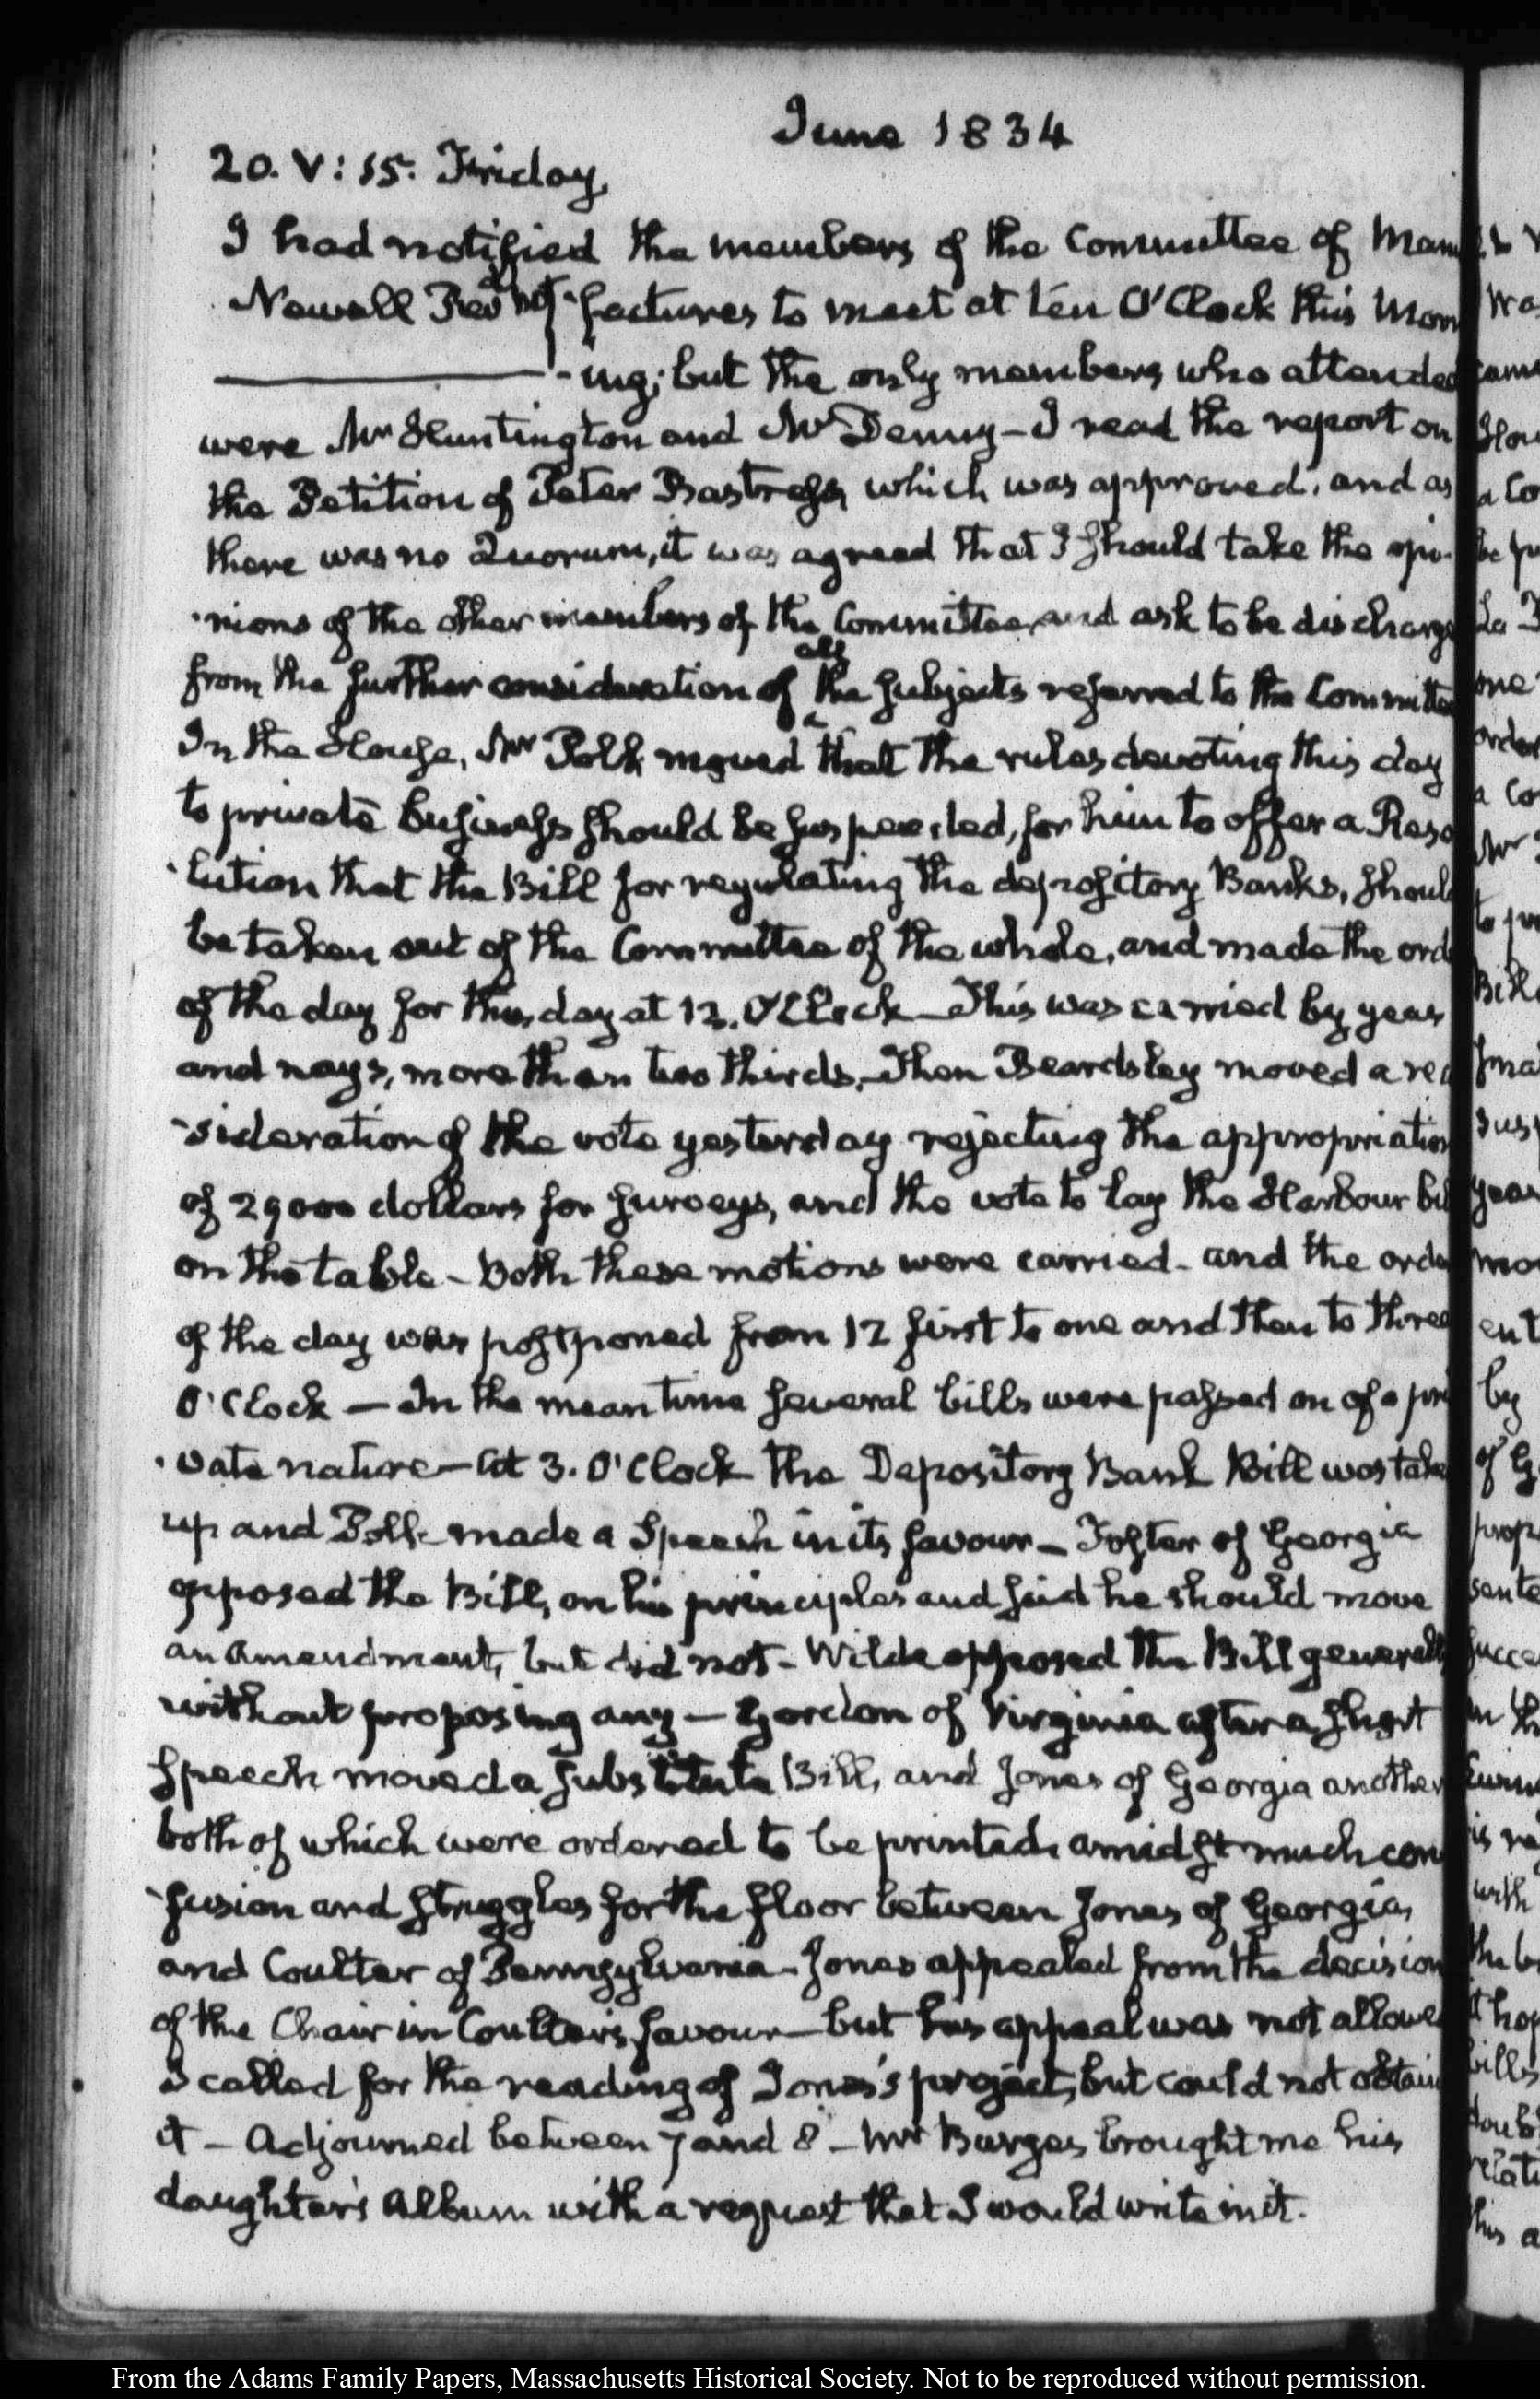 June 1834
20. V: 15. Friday,
I had notified the members of the Committee of Manu
Newell
factures to meet at ten O'Clock this Morn
-ing; but the only members who attended
were Mr Huntington and Mr Denny—I read the report on
the Petition of Peter Bastress, which was approved, and as
there was no Quorum, it was agreed that I should take the opi-
-nions of the other members of the Committee, and ask to be discharge
all
from the further consideration of the subjects referred to the Committee
In the House, Mr Polk moved that the rules devoting this day
to private business should be suspended, for him to offer a Reso
-lution that the Bill for regulating the depository Banks, should
be taken out of the Committee of the whole, and made the orde
of the day for this day at 12. O'Clock—This was carried by yeas
and nays, more than two thirds. Then Beardsley moved a
-sideration of the vote yesterday rejecting the appropriation
of 29000 dollars for surveys, and the vote to lay the Harbour bil
on the table—Both these motions were carried—and the order
of the day was postponed from 12 first to one and then to three
O'Clock—In the mean time several bills were passed on of a pri
-vate nature—At 3. O'Clock the Depository Bank Bill was take
up and Polk made a Speech in its favour—Foster of Georgia
opposed the Bill, on his principles and said he should move
an amendment, but did not—Wilde opposed the Bill generally
without proposing any—Gordon of Virginia after a short
speech moved a substitute Bill, and Jones of Georgia another
both of which were ordered to be printed, amidst much con
-fusion and struggles for the floor between Jones of Georgia,
and Coulter of Pennsylvania—Jones appealed from the decision
of the Chair in Coulter's favour—but his appeal was not allowed
I called for the reading of Jones's project, but could not obtain
it—Adjourned between 7 and 8—Mr Burges brought me his
daughter's Album with a request that I would write in it.
From the Adams Family Papers, Massachusetts Historical Society. Not to be reproduced without permission.